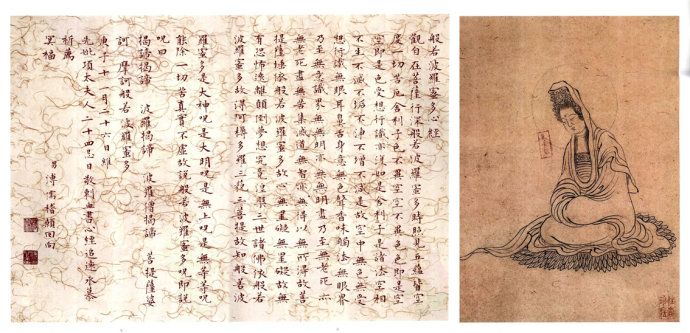 般若波羅蜜多心經
觀自在菩薩行深般若波羅蜜多時照見五蘊皆空
度一切苦厄舍利子色不異空空不異色色即是空
空即是色受想行識亦復如是舍利子是諸法空相
不生不滅不垢不淨不增不減是故空中無色無受
想行識無眼耳鼻舌身意無色聲香味觸法無眼界
乃至無意識界無無明亦無無明盡乃至無老死亦
無老死盡無苦集滅道無智亦無得以無所得故菩
提薩埵依般若波羅蜜多故心無罣礙無罣礙故無
有恐怖遠離顛倒夢想究竟涅槃三世諸佛依般若
波羅蜜多故得阿耨多羅三藐三菩提故知般若波
羅蜜多是大神呪是大明呪是無上呪是無等等呪
能除一切苦真實不虛故說般若波羅蜜多呪即說
呪曰
揭諦揭諦 波羅揭諦 波羅僧揭諦 菩提薩婆
訶 摩訶般若波羅蜜多
庚子十一月二十六日維
先妣項太夫人二十四忌日敬刺血書心經追遠永慕
祈薦
冥福
男溥稽顙回向